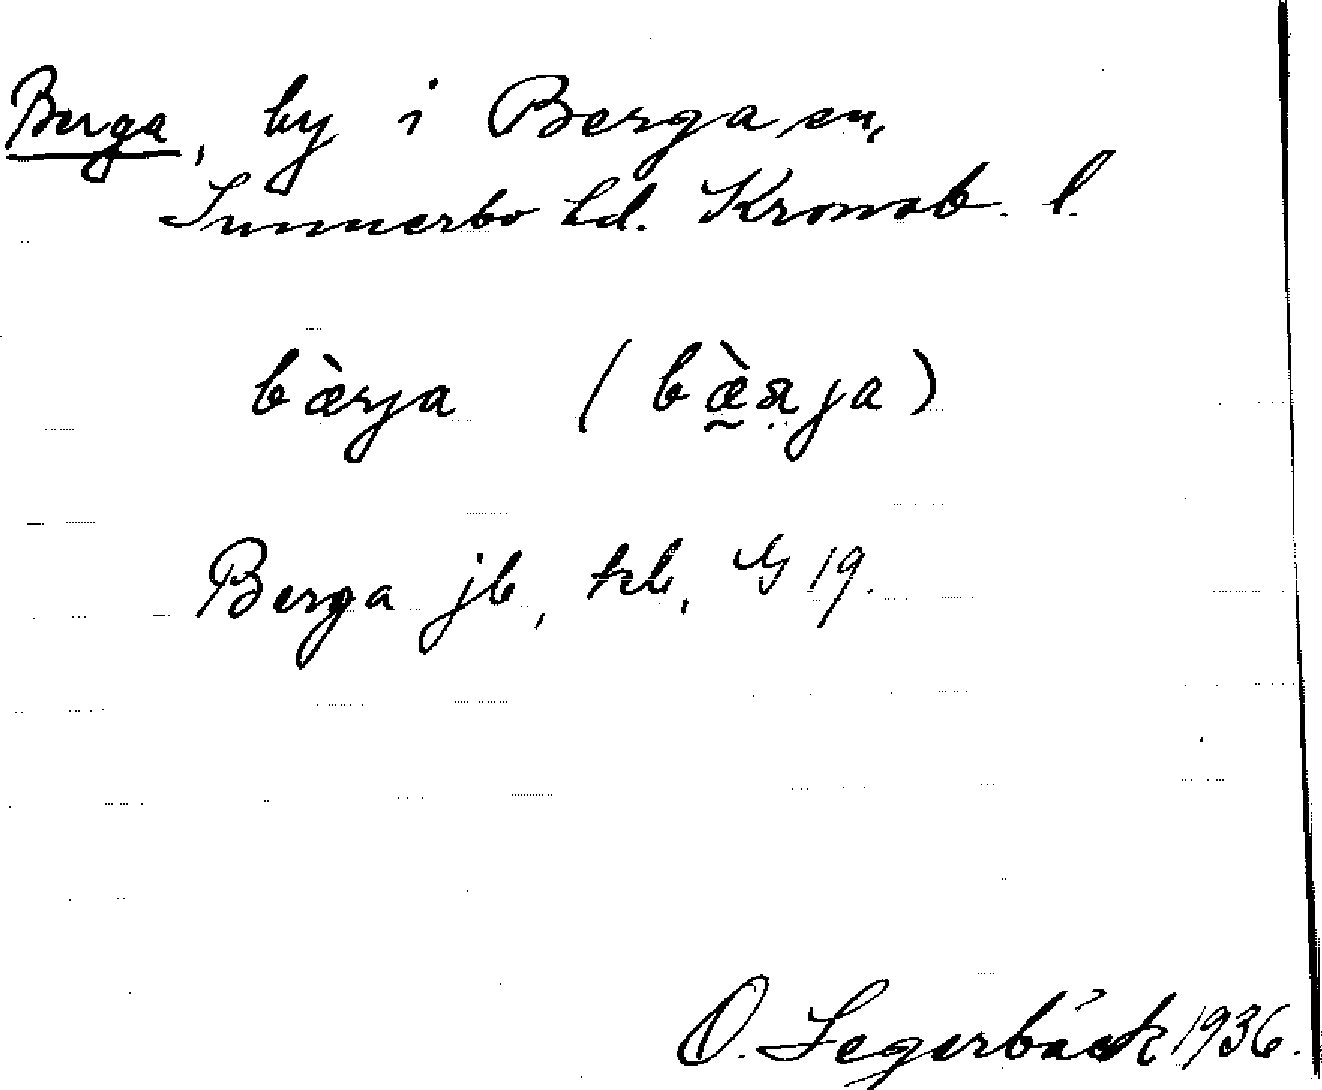 Berga, by i Berga sn,
Sunnerbo hd. Kronob. l.
bærja (bæ̀rja)
Berga jb, tcb, G 19.
O. Segerbäck 1936.